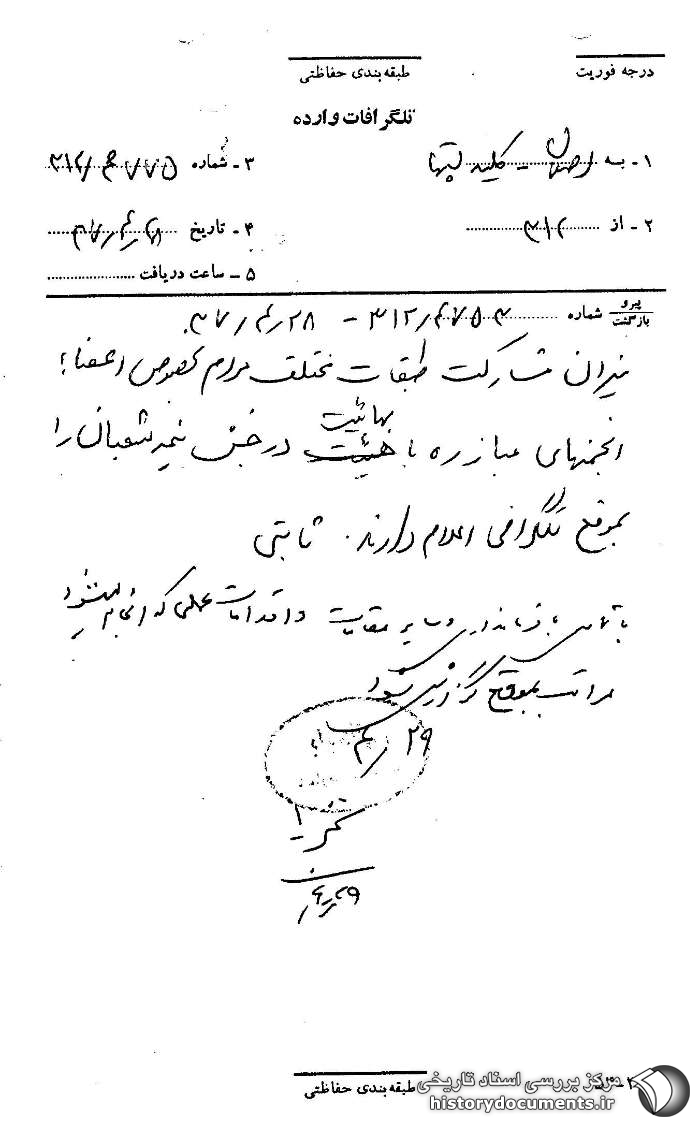 درجه فوریت
طبقه‌بندی حفاظتی
تلگرافات وارده
۱ - به
۳ - شماره ۳۱۲/
۲ - از ۳۱۲
۴ - تاریخ
۵ - ساعت دریافت
پیرو
بازگشت
شماره ۳۱۲/ - ۳۷/۴/۲۸
میزان مشارکت طبقات مختلف مردم بخصوص اعضاء
بهائیت
انجمنهای مبارزه با هیئت در جشن نیمه شعبان را
بموقع تلگرافی اعلام دارند. ثابتی
با فرمانداری و سایر مقامات و اقدامات عملی که انجام میشود
مراتب بموقع گزارش شود
۲۹/۴
۲۹/۴
طبقه‌بندی حفاظتی
مرکز بررسی اسناد تاریخی
historydocuments.ir